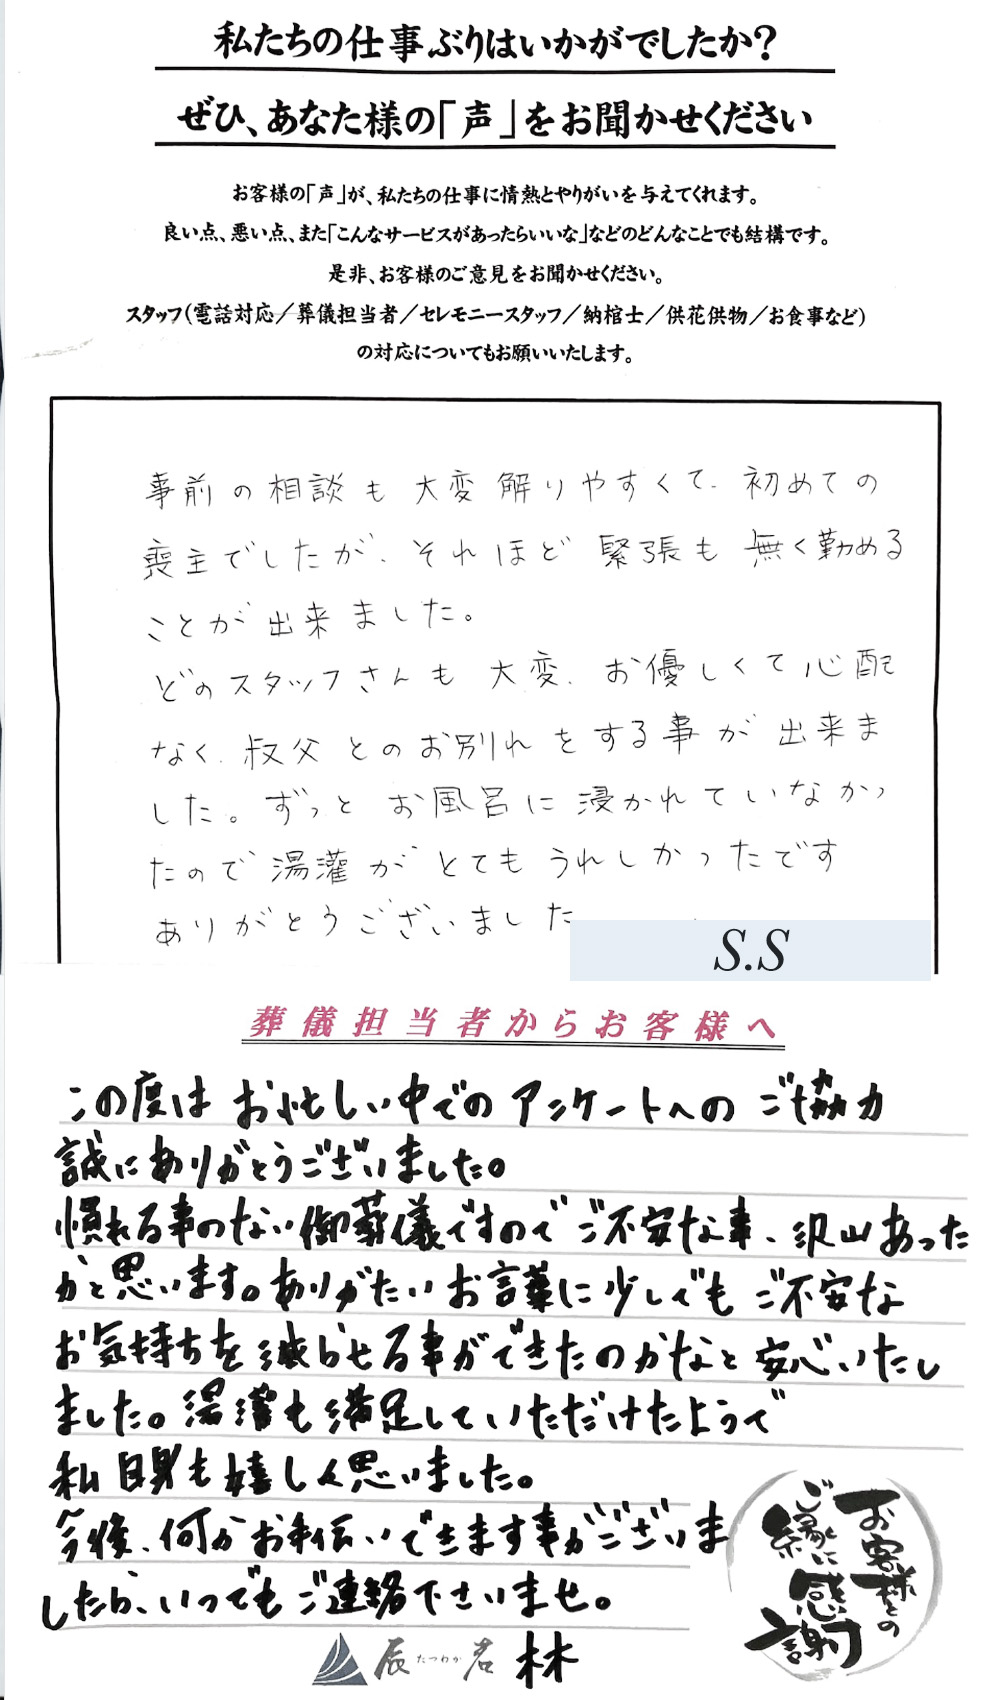 私たちの仕事ぶりはいかがでしたか?
ぜひ、あなた様の「声」をお聞かせください
お客様の「声」が、私たちの仕事に情熱とやりがいを与えてくれます。
良い点、悪い点、また「こんなサービスがあったらいいな」などのどんなことでも結構です。
是非、お客様のご意見をお聞かせください。
スタッフ(電話対応/葬儀担当者/セレモニースタッフ/納棺士/供花供物/お食事など)
の対応についてもお願いいたします。
事前の相談も大変解りやすくて、初めての
喪主でしたが、それほど緊張も無く勤める
ことが出来ました。
どのスタッフさんも大変、お優しくて心配
なく、叔父とのお別れをする事が出来ま
した。ずっとお風呂に浸かれていなかっ
たので湯灌がとてもうれしかったです
ありがとうございました
S.S
葬儀担当者からお客様へ
この度はお忙しい中でのアンケートへのご協力
誠にありがとうございました。
慣れる事のない御葬儀ですのでご不安な事、沢山あった
かと思います。ありがたいお言葉に少しでもご不安な
お気持ちを減らせる事ができたのかなと安心いたし
ました。湯灌も満足していただけたようで
私自身も嬉しく思いました。
今後、何かお手伝いできます事がございま
したら、いつでもご連絡下さいませ。
お客様との
ご縁に
感謝
辰たつわか若 林